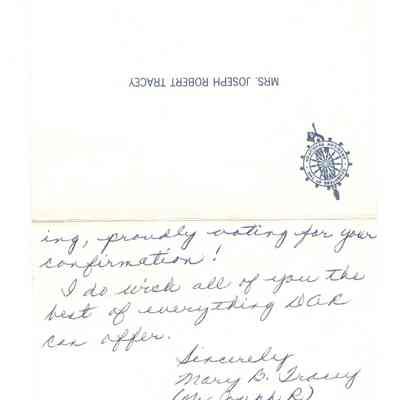 MRS. JOSEPH ROBERT TRACEY
ing, proudly voting for your
confirmation!
I do wish all of you the
best of everything DAR
can offer.
Sincerely
Mary B. Tracey
(Mrs. Joseph R)